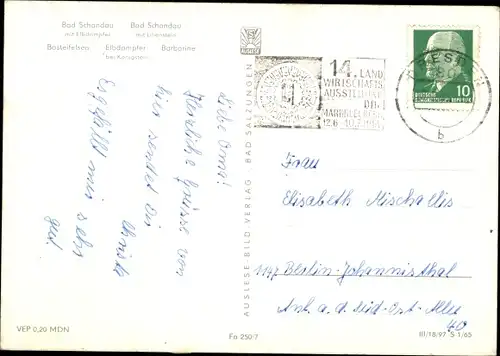 Bad Schandau
mit Elbdampfer
Bad Schandau
mit Lilienstein
Basteifelsen
Elbdampfer
bei Königstein
Barbarine
Liebe Oma!
Herzliche Grüsse von
hier sendet Dir
Christa
Es gefällt mir sehr
gut.
AUSLESE-BILD-VERLAG · BAD SALZUNGEN
14. LAND
WIRTSCHAFTS
AUSSTELLUNG
DDR
MARKKLEEBERG
DRESDEN
b
10
DEUTSCHE
DEMOKRATISCHE REPUBLIK
Frau
Elisabeth Mischallis
1197 Berlin-Johannisthal
Anl. a. d. Süd-Ost-Allee
40
VEP 0,20 MDN
Fa 250-7
III/18/97 S 1/65